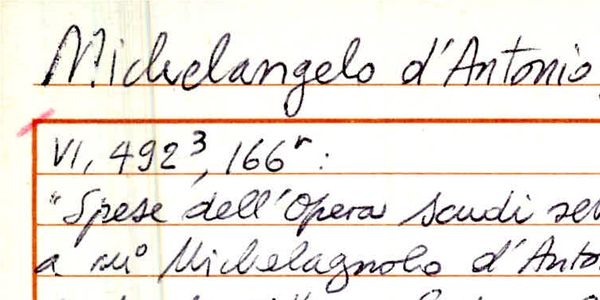 Michelangelo d'Antonio
VI, 492³, 166ʳ:
"Spese dell'Opera scudi
a mº Michelagnolo d'Anto